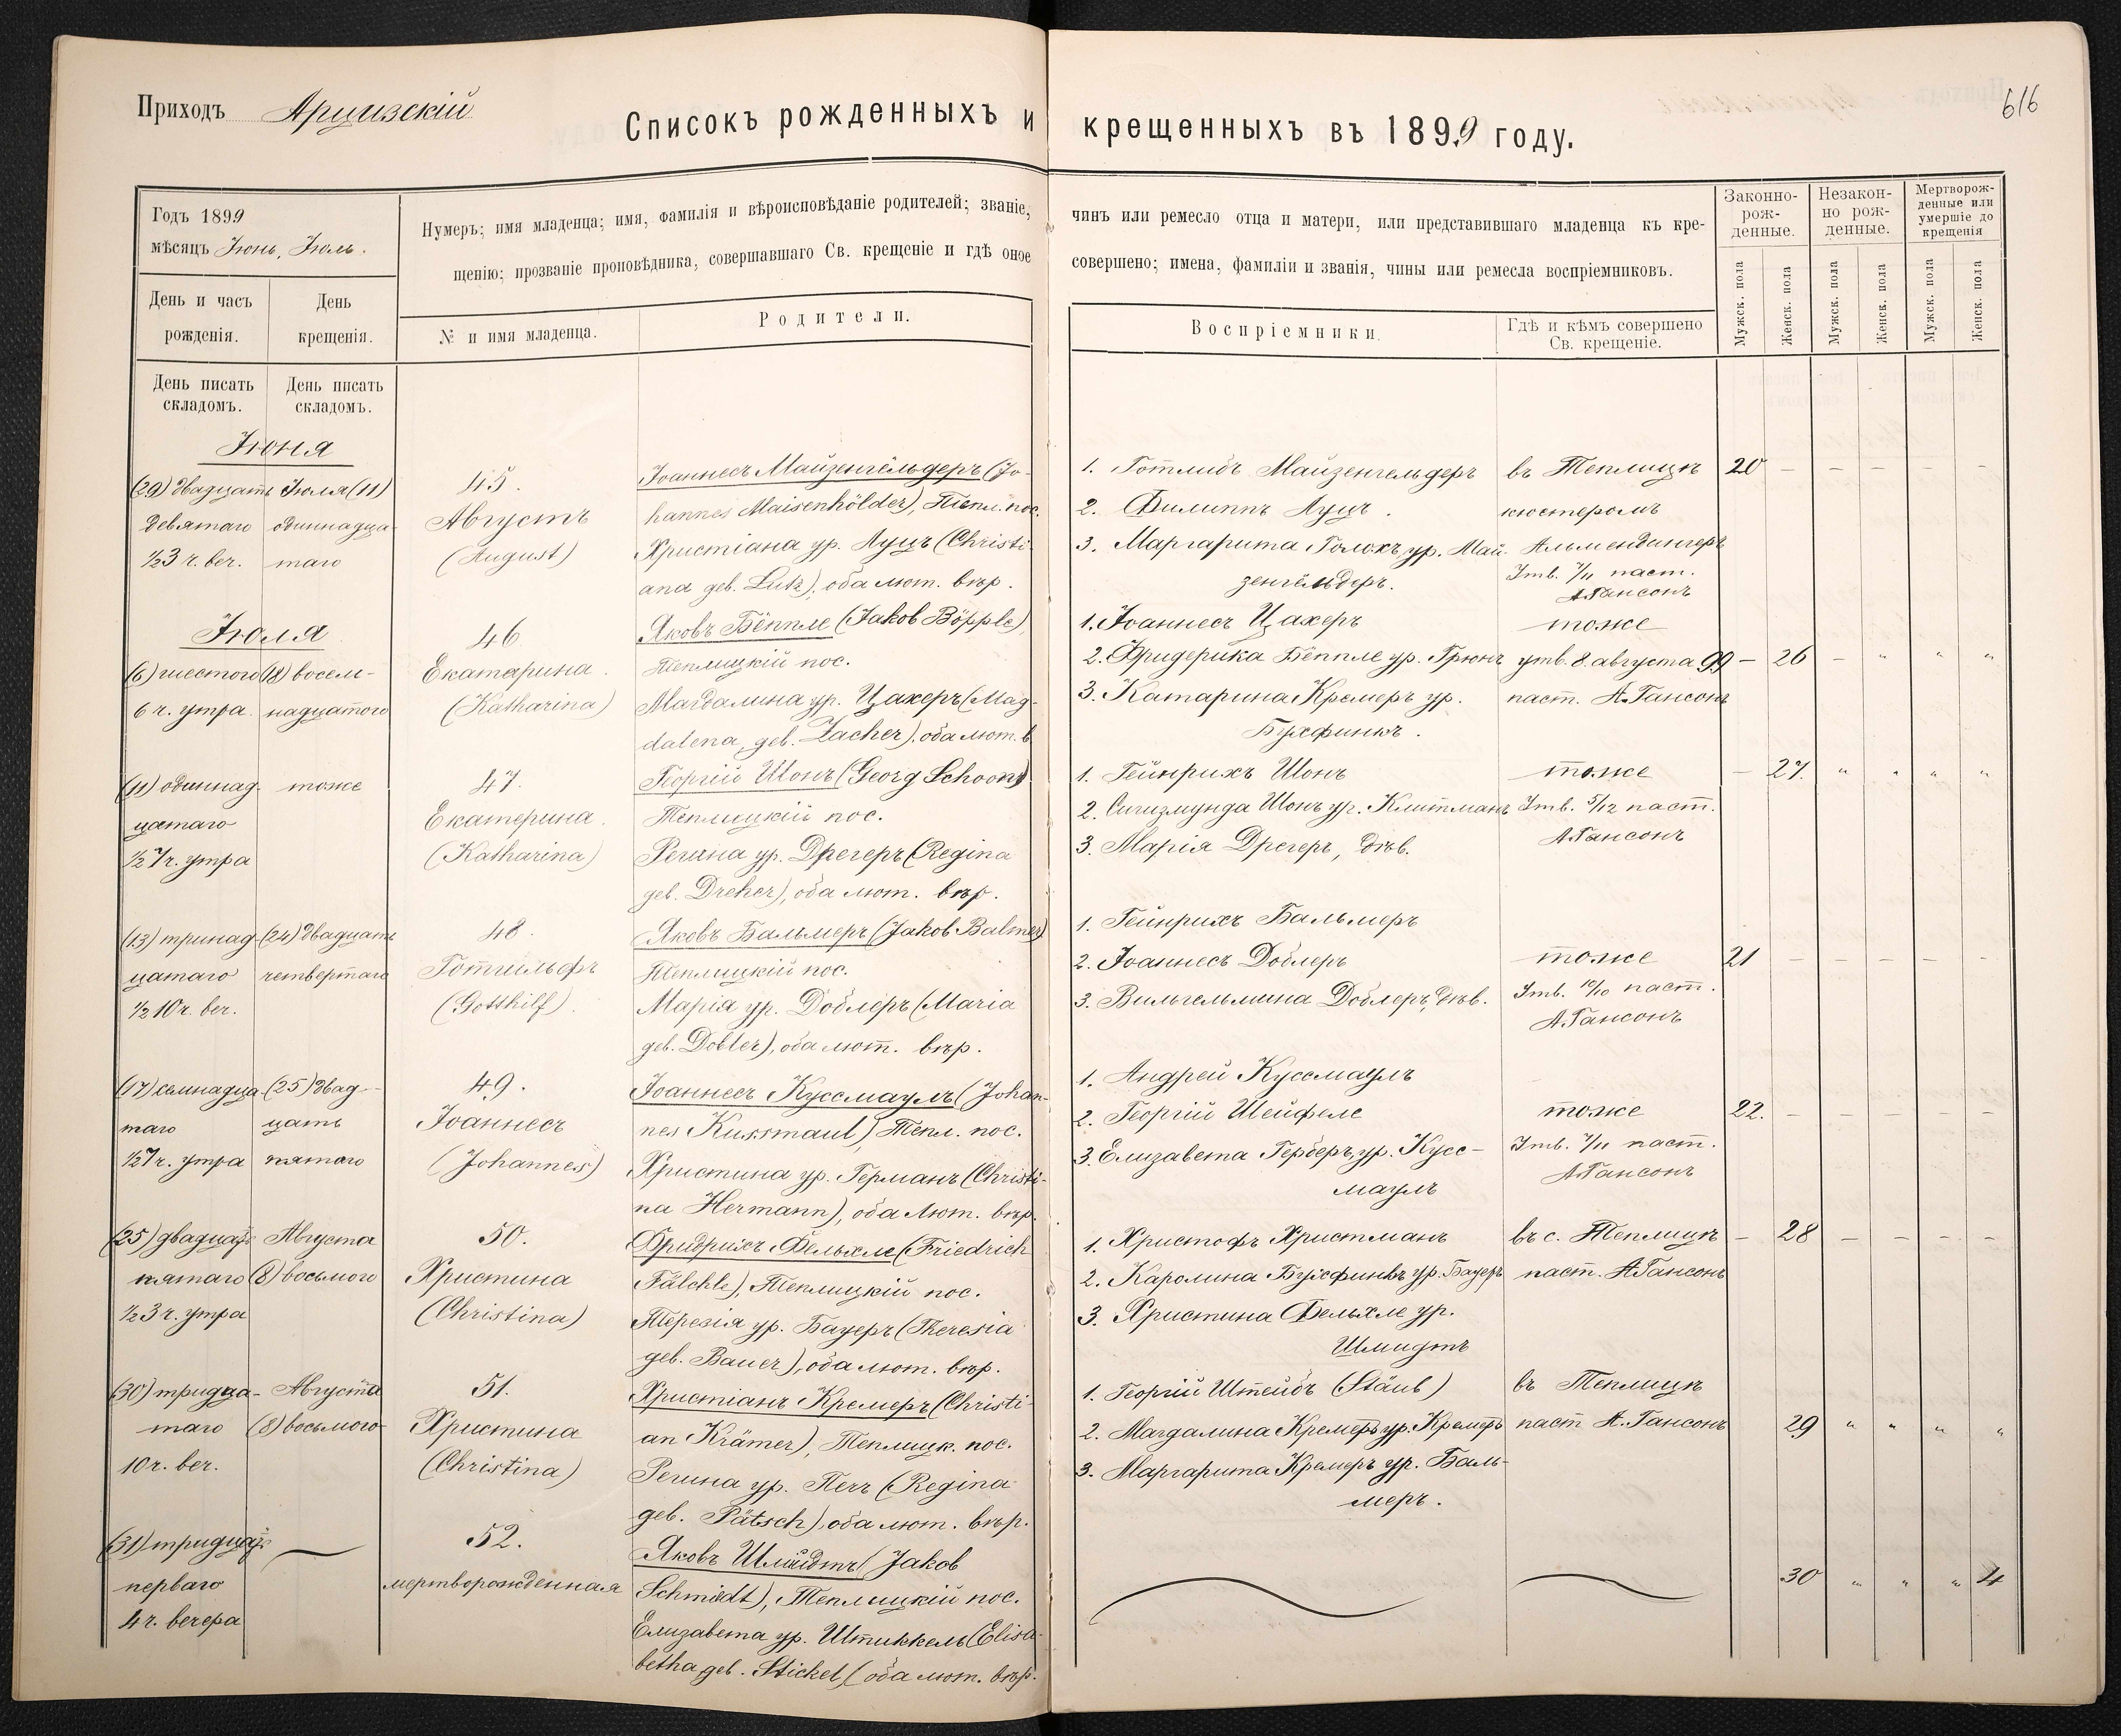 Приходъ Арцизскій
Списокъ рожденныхъ и крещенныхъ въ 1899 году.
616
Годъ 1899
мѣсяцъ Іюнь, Іюль.
Нумеръ; имя младенца; имя, фамилія и вѣроисповѣданіе родителей; званіе, чинъ или ремесло отца и матери, или представившаго младенца къ кре-
щенію; прозваніе проповѣдника, совершавшаго Св. крещеніе и гдѣ оное совершено; имена, фамиліи и званія, чины или ремесла воспріемниковъ.
Законно-
рож-
денные.
Незакон-
но рож-
денные.
Мертворож-
денные или
умершіе до
крещенія
День и часъ
рожденія.
День
крещенія.
№ и имя младенца.
Родители.
Воспріемники.
Гдѣ и кѣмъ совершено
Св. крещеніе.
Мужск. пола
Женск. пола
Мужск. пола
Женск. пола
Мужск. пола
Женск. пола
День писать
складомъ.
День писать
складомъ.
Іюня
(29) двадцать
девятаго
½3 ч. веч.
Іюля (11)
одиннадца-
таго
45.
Августъ
(August)
Іоаннесъ Майзенгёльдеръ (Jo-
hannes Maisenhölder), Тепл. пос.
Христіана ур. Луцъ (Christi-
ana geb. Lutz), оба лют. вѣр.
1. Готлибъ Майзенгельдеръ
2. Филиппъ Луцъ.
3. Маргарита Голохъ ур. Май-
зенгёльдеръ.
въ Теплицѣ
кюстеромъ
Альмендингеръ
Утв. 7/11 паст.
А.Гансонъ
20 – – – – –
Іюля
(6) шестого
6 ч. утра
(18) восем-
надцатого
46
Екатарина.
(Katharina)
Яковъ Бёппле (Jakob Böpple)
Теплицкій пос.
Магдалина ур. Цахеръ (Mag-
dalena, geb. Zacher), оба лют. в.
1. Іоаннесъ Цахеръ
2. Фридерика Бёппле ур. Грюнъ
3. Катарина Кремеръ ур.
Бухфинкъ.
тоже
утв. 8. августа 99
паст. А.Гансонъ
– 26 – " " "
(11) одиннад-
цатаго
½7 ч. утра
тоже
47.
Екатерина.
(Katharina)
Георгій Шонъ (Georg Schoon)
Теплицкій пос.
Регина ур. Дрегеръ (Regina
geb. Dreher), оба лют. вѣр.
1. Гейнрихъ Шонъ
2. Сигизмунда Шонъ ур. Клитманъ
3. Марія Дрегеръ, дѣв.
тоже
Утв. 5/12 паст.
А.Гансонъ
– 27. " " " "
(13) тринад-
цатаго
½10 ч. веч.
(24) двадцать
четвертаго
48.
Готгильфъ
(Gotthilf).
Яковъ Бальмеръ (Jakob Balmer)
Теплицкій пос.
Марія ур. Доблеръ (Maria
geb. Dobler), оба лют. вѣр.
1. Гейнрихъ Бальмеръ
2. Іоаннесъ Доблеръ
3. Вильгельмина Доблеръ, дѣв.
тоже
Утв. 10/10 паст.
А.Гансонъ
21 – – – – –
(17) семнадца-
таго
½7 ч. утра
(25) двад-
цать
пятаго
49.
Іоаннесъ
(Johannes)
Іоаннесъ Куссмаулъ (Johan-
nes Kussmaul), Тепл. пос.
Христина ур. Германъ (Christi-
na Hermann), оба лют. вѣр.
1. Андрей Куссмаулъ
2. Георгій Шейфеле
3. Елизавета Герберъ, ур. Кусс-
маулъ
тоже
Утв. 7/11 паст.
А.Гансонъ
22. – – – – –
(25) двадцать
пятаго
½3 ч. утра
Августа
(8) восьмого
50.
Христина
(Christina)
Фридрихъ Фельхле (Friedrich
Fälchle), Теплицкій пос.
Терезія ур. Бауеръ (Theresia
geb. Bauer), оба лют. вѣр.
1. Христофъ Христманъ
2. Каролина Бухфинкъ ур. Бауеръ
3. Христина Фельхле ур.
Шмидтъ
въ с. Теплицѣ
паст. А.Гансонъ
– 28 – – – –
(30) тридца-
таго
10 ч. веч.
Августа
(8) восьмого
51.
Христина
(Christina)
Христіанъ Кремеръ (Christi-
an Krämer), Теплицк. пос.
Регина ур. Печъ (Regina
geb. Pätsch), оба лют. вѣр.
1. Георгій Штейбъ (Stäub)
2. Магдалина Кремеръ ур. Кремеръ
3. Маргарита Кремеръ ур. Баль-
меръ.
въ Теплицѣ
паст А.Гансонъ
29 " " " "
(31) тридцать
перваго
4 ч. вечера
52.
мертворожденная
Яковъ Шмидтъ (Jakob
Schmidt), Теплицкій пос.
Елизавета ур. Штиккель (Elisa-
betha geb. Stickel) оба лют. вѣр.
30 " " " 4